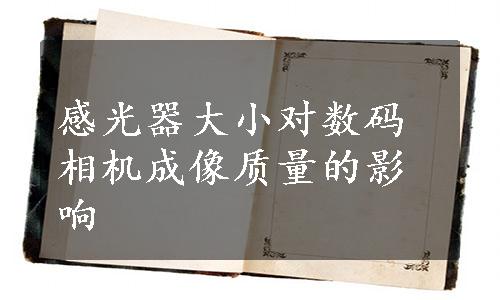 感光器大小对数码
相机成像质量的影
响